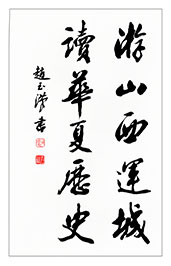 游山西運城
讀華夏歷史
趙玉漢書